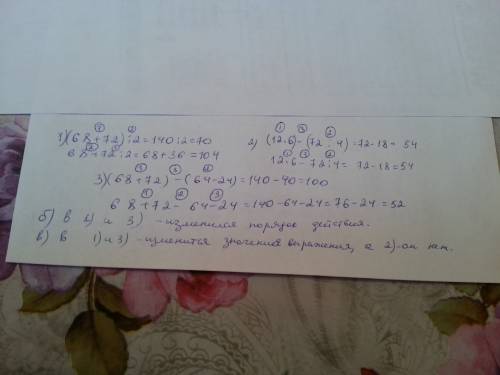 1) (68+72):2=140:2=70
68+72:2=68+36=104
2) (12·6)-(72:4)=72-18=54
12·6-72:4=72-18=54
3) (68+72)-(64-24)=140-40=100
68+72-64-24=140-64-24=76-24=52
б) в 1) и 3) - изменился порядок действия.
в) в 1) и 3) - изменится значение выражения, а 2)-ом нет.